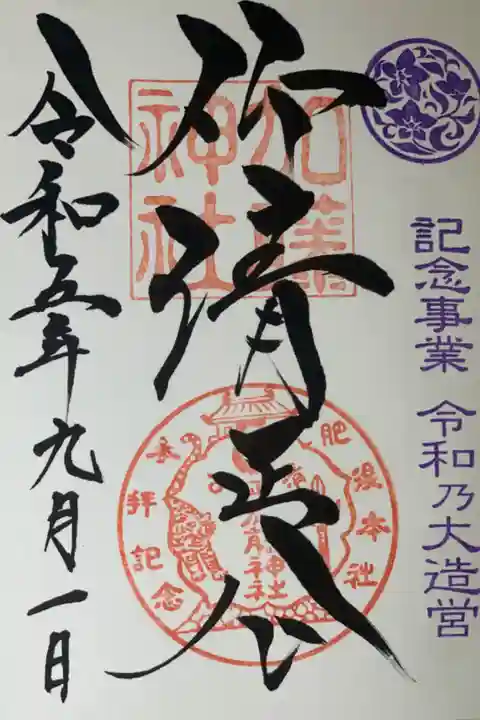 記念事業 令和乃大造営
加藤神社
清正公
参拝記念
肥後本社
加藤神社
令和五年九月一日